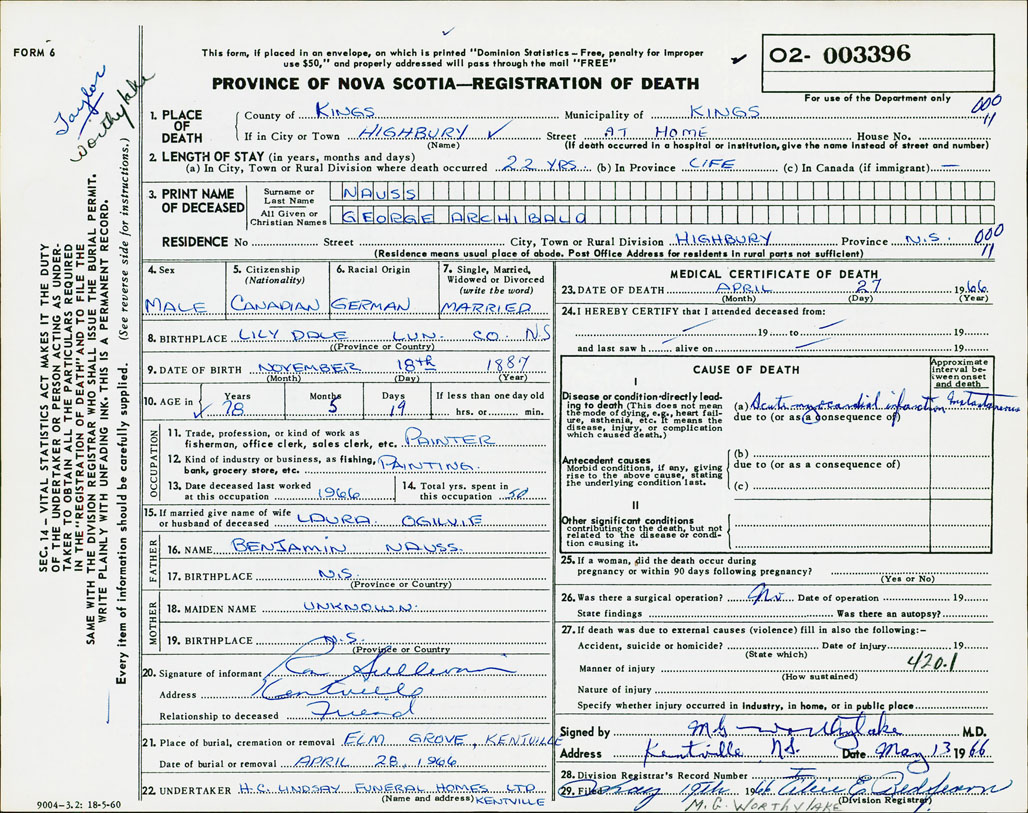 FORM 6
This form, if placed in an envelope, on which is printed "Dominion Statistics – Free, penalty for improper
use $50," and properly addressed will pass through the mail "FREE"
PROVINCE OF NOVA SCOTIA—REGISTRATION OF DEATH
02- 003396
For use of the Department only
Taylor
Worthylake
SEC. 14 – VITAL STATISTICS ACT MAKES IT THE DUTY
OF THE UNDERTAKER OR PERSON ACTING AS UNDER-
TAKER TO OBTAIN ALL THE PARTICULARS REQUIRED
IN THE "REGISTRATION OF DEATH" AND TO FILE THE
SAME WITH THE DIVISION REGISTRAR WHO SHALL ISSUE THE BURIAL PERMIT.
WRITE PLAINLY WITH UNFADING INK. THIS IS A PERMANENT RECORD.
Every item of information should be carefully supplied. (See reverse side for instructions.)
1. PLACE OF DEATH
County of KINGS Municipality of KINGS 000 11
If in City or Town HIGHBURY Street AT HOME House No.
(Name) (If death occurred in a hospital or institution, give the name instead of street and number)
2. LENGTH OF STAY (in years, months and days)
(a) In City, Town or Rural Division where death occurred 22 YRS. (b) In Province LIFE (c) In Canada (if immigrant) —
3. PRINT NAME OF DECEASED
Surname or Last Name NAUSS
All Given or Christian Names GEORGE ARCHIBALD
RESIDENCE No Street City, Town or Rural Division HIGHBURY Province N.S. 000 11
(Residence means usual place of abode. Post Office Address for residents in rural parts not sufficient)
4. Sex MALE
5. Citizenship (Nationality) CANADIAN
6. Racial Origin GERMAN
7. Single, Married, Widowed or Divorced (write the word) MARRIED
8. BIRTHPLACE LILY DALE LUN. CO. N.S
(Province or Country)
9. DATE OF BIRTH NOVEMBER 18th 1887
(Month) (Day) (Year)
10. AGE in Years 78 Months 5 Days 19 If less than one day old hrs. or min.
OCCUPATION
11. Trade, profession, or kind of work as
fisherman, office clerk, sales clerk, etc. PAINTER
12. Kind of industry or business, as fishing,
bank, grocery store, etc. PAINTING.
13. Date deceased last worked
at this occupation 1966
14. Total yrs. spent in
this occupation 50
15. If married give name of wife
or husband of deceased LAURA OGILVIE
FATHER
16. NAME BENJAMIN NAUSS.
17. BIRTHPLACE N.S.
(Province or Country)
MOTHER
18. MAIDEN NAME UNKNOWN.
19. BIRTHPLACE N.S.
(Province or Country
20. Signature of informant Sullivan
Address Kentville
Relationship to deceased Friend
21. Place of burial, cremation or removal ELM GROVE, KENTVILLE
Date of burial or removal APRIL 28, 1966
22. UNDERTAKER H.C. LINDSAY FUNERAL HOMES LTD
(Name and address) KENTVILLE
9004-3.2: 18-5-60
MEDICAL CERTIFICATE OF DEATH
23. DATE OF DEATH APRIL 27 1966
(Month) (Day) (Year)
24. I HEREBY CERTIFY that I attended deceased from:
19 to 19
and last saw h alive on 19
CAUSE OF DEATH
Approximate interval between onset and death
I
Disease or condition directly lead-
ing to death (This does not mean
the mode of dying, e.g., heart fail-
ure, asthenia, etc. It means the
disease, injury, or complication
which caused death.)
(a) Acute myocardial infarction Instantaneous
due to (or as a consequence of)
Antecedent causes
Morbid conditions, if any, giving
rise to the above cause, stating
the underlying condition last.
(b)
due to (or as a consequence of)
(c)
II
Other significant conditions
contributing to the death, but not
related to the disease or condi-
tion causing it.
25. If a woman, did the death occur during
pregnancy or within 90 days following pregnancy?
(Yes or No)
26. Was there a surgical operation? No Date of operation 19
State findings Was there an autopsy?
27. If death was due to external causes (violence) fill in also the following:–
Accident, suicide or homicide? Date of injury 19
(State which)
Manner of injury 420.1
(How sustained)
Nature of injury
Specify whether injury occurred in industry, in home, or in public place
Signed by MG Worthylake M.D.
Address Kentville N.S. Date May 13 1966
28. Division Registrar's Record Number
29. Filed May 19th 1966
(Division Registrar)
M. G. WORTHYLAKE